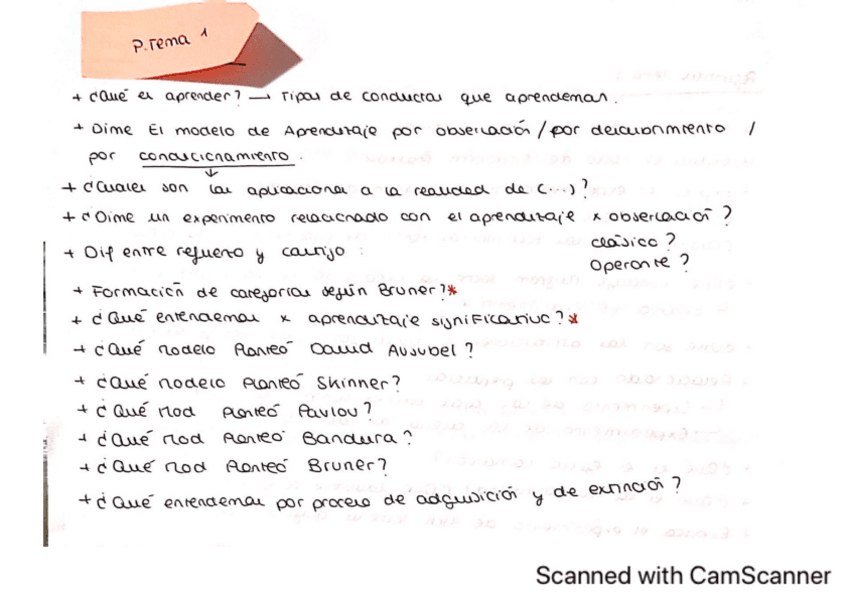 P.Tema 1
+ ¿Qué es aprender? → Tipos de conductas que aprendemos.
+ Dime El modelo de Aprendizaje por observación / por descubrimiento /
por condiscionamiento.
+ ¿Cuales son las aplicaciones a la realidad de (...)?
+ ¿Dime un experimento relacionado con el aprendizaje x observación?
clásico?
+ Dif entre refuerzo y castigo :
Operante?
+ Formación de categorías según Bruner?*
+ ¿Qué entendemos x aprendizaje significativo?*
+ ¿Qué modelo Planteó David Ausubel?
+ ¿Qué modelo Planteó Skinner?
+ ¿Qué Mod Planteó Pavlov?
+ ¿Qué Mod Planteó Bandura?
+ ¿Qué mod Planteó Bruner?
+ ¿Qué entendemos por proceso de adquisición y de extinción?
Scanned with CamScanner